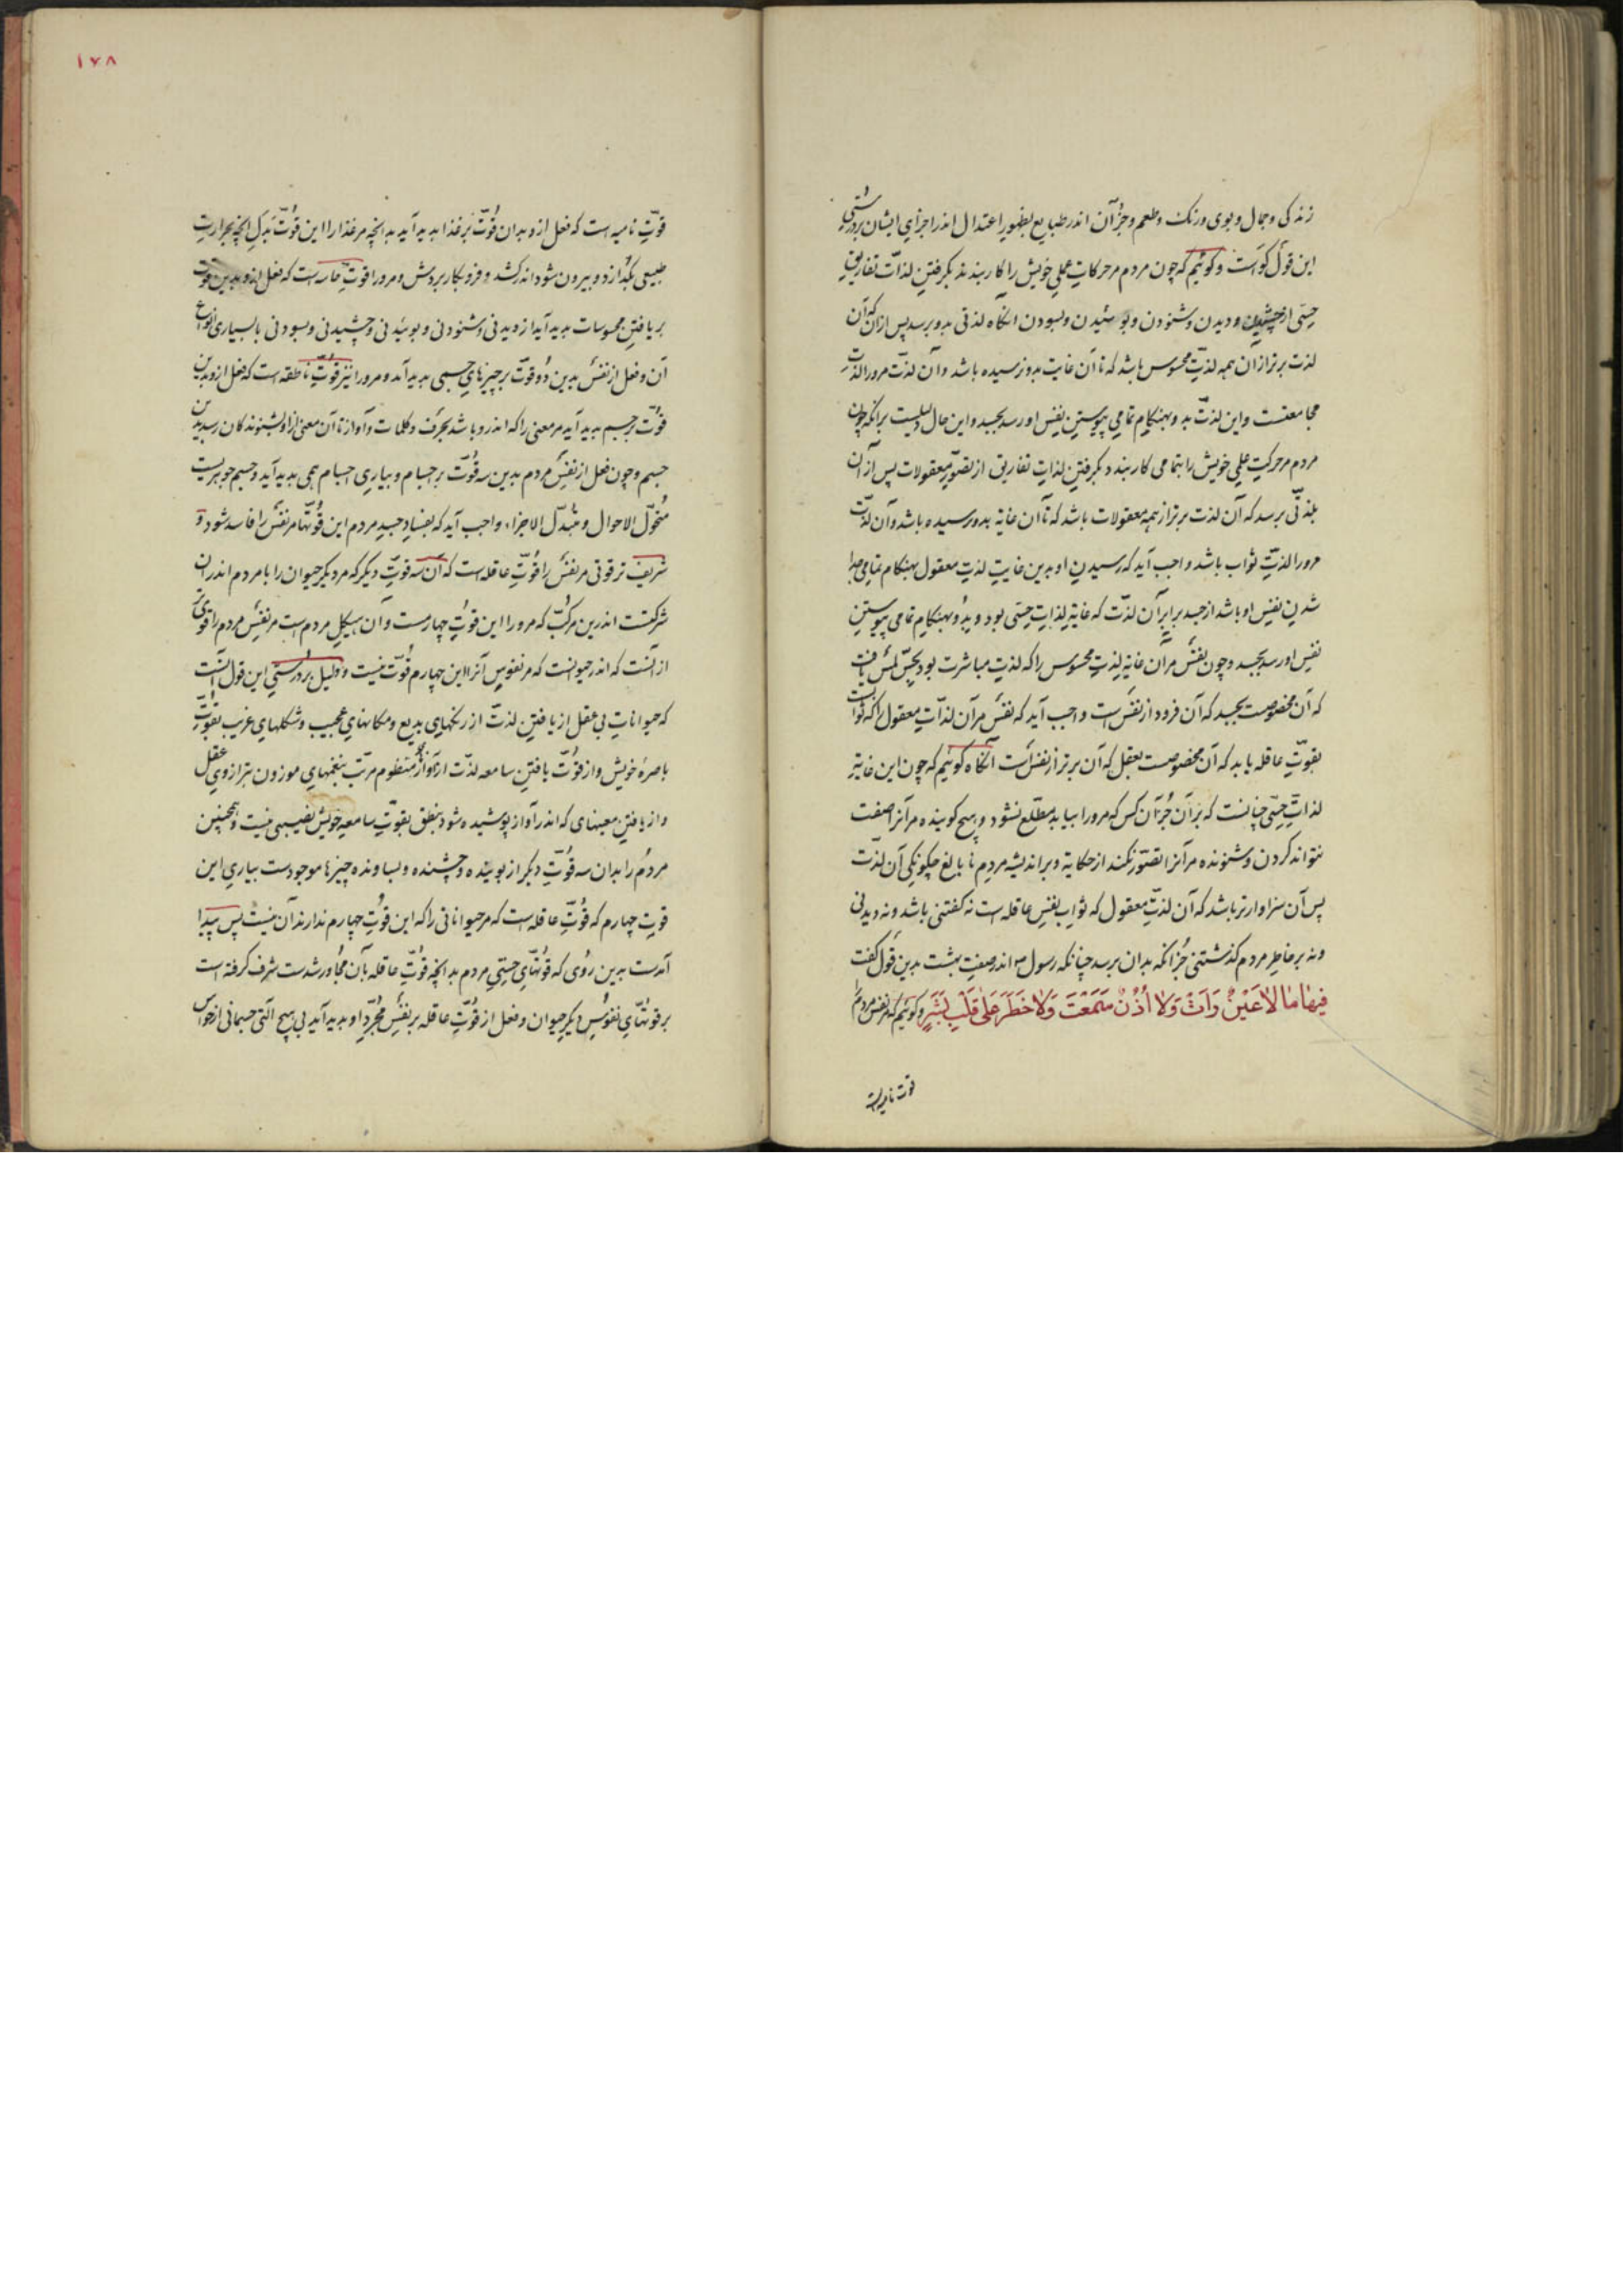 زندکی وجمال وبوی ورنک وطعم وجزآن اندر طبایع بظهور اعتدال اندر اجزای ایشان بر درستی
این قول کواست وکوئیم که چون مردم مر حرکات عملی خویش را کار بندند بکرفتن لذات تفاریق
حسی از چشیدن ودیدن وشنودن وبوئیدن وبسودن آنکاه لذتی بدو برسد پس ازان که آن
لذت برتر ازان همه لذت محسوس باشد که تا آن غایت بدو نرسیده باشد وآن لذت مرورا لذت
مجامعتست واین لذت بدو بهنکام تمامی پیوستن نفس او رسد بجسد واین حال دلیلست برانکه چون
مردم مر حرکت علمی خویش را بتمامی کار بندد بکرفتن لذات تفاریق از تصور معقولات پس ازآن
بلذتی برسد که آن لذت برتر از همه معقولات باشد که تا آن غایة بدو رسیده باشد وآن لذت
مرورا لذت ثواب باشد واجب آید که رسیدن او بدین غایت لذت معقول بهنکام تمامی جدا
شدن نفس او باشد از جسد برابر آن لذت که غایة لذات حسی بود وبدو بهنکام تمامی پیوستن
نفس او رسد بجسد وچون نفس مرآن غایة لذت محسوس را که لذت مباشرت بود بحس لمس یافت
که آن مخصوصست بجسد که آن فرود از نفس است واجب آید که نفس مرآن لذات معقول را که ثوابست
بقوت عاقله یابد که آن مخصوصست بعقل که آن برتر از نفس است آنکاه کوئیم که چون این غایة
لذات حسی چنانست که برآن جزآن کس که مرورا بیابد مطلع نشود وهیچ کوینده مرآنرا صفت
نتواند کردن وشنونده مرآنرا تصور نکند از حکایة وبر اندیشه مردم نابالغ چکونکی آن لذت
پس آن سزاوارتر باشد که آن لذت معقول که ثواب نفس عاقله است نه کفتنی باشد ونه دیدنی
ونه بر خاطر مردم کذشتنی جز آنکه بدان برسد چنانکه رسول م اندر صفت بهشت بدین قول کفت
فیها ما لا عین رات ولا اذن سمعت ولا خطر علی قلب بشر وکوئیم که مر نفس مردم را
قوت نامیه است
۱۷۸
قوت نامیه است که فعل ازو بدان قوت بر غذا پدید آید بدانچه مر غذا را این قوت بدل آنچه بحرارت
طبیعی بکدازد وبیرون شود اندر کشد وفزو بکار بردش ومرورا قوت حاسه است که فعل ازو بدین قوت
بر یافتن محسوسات پدید آید از دیدنی وشنودنی وبوئیدنی وچشیدنی وبسودنی با بسیاری انواع
آن وفعل از نفس بدین دو قوت بر چیزهای جسمی پدید آمد ومرورا نیز قوت ناطقه است که فعل ازو بدین
قوت بر جسم پدید آید مر معنی را که اندرو باشد بحرف وکلمات وآواز تا آن معنی ازاو بشنوندکان رسد بدین
جسم وچون فعل از نفس مردم بدین سه قوت بر اجسام وبیاری اجسام همی پدید آید وجسم جوهریست
متحول الاحوال ومتبدل الاجزاء واجب آید که بفساد جسد مردم این قوتها مر نفس را فاسد شود و
شریف تر قوتی مر نفس را قوت عاقله است که آن سه قوت دیکر که مر دیکر حیوان را با مردم اندران
شرکتست اندرین مرکب که مرورا این قوت چهارمست وآن هیکل مردم است مر نفس مردم را قوی تر
ازآنست که اندر حیوانست که مر نفوس آنرا این چهارم قوت نیست ودلیل بر درستی این قول آنست
که حیوانات بی عقل از یافتن لذت از رنکهای بدیع ومکانهای عجیب وشکلهای غریب بقوت
باصرهٔ خویش واز قوت یافتن سامعه لذت از آوازهای منظوم مرتب بنغمهای موزون بترازوی عقل
واز یافتن معنیهای که اندر آواز پوشیده شود بنطق بقوت سامعه خویش نصیبی نیست وهمچنین
مردم را بدان سه قوت دیکر از بوینده وچشنده وبساونده چیزها موجودست بیاری این
قوت چهارم که قوت عاقله است که مر حیواناتی را که این قوت چهارم ندارند آن نیست پس پیدا
آمدست بدین روی که قوتهای حسی مردم بدانچه قوت عاقله بآن مجاور شدست شرف کرفته است
بر قوتهای نفوس دیکر حیوان وفعل از قوت عاقله بر نفس مجرد او پدید آید بی هیچ آلتی جسمانی از حواس